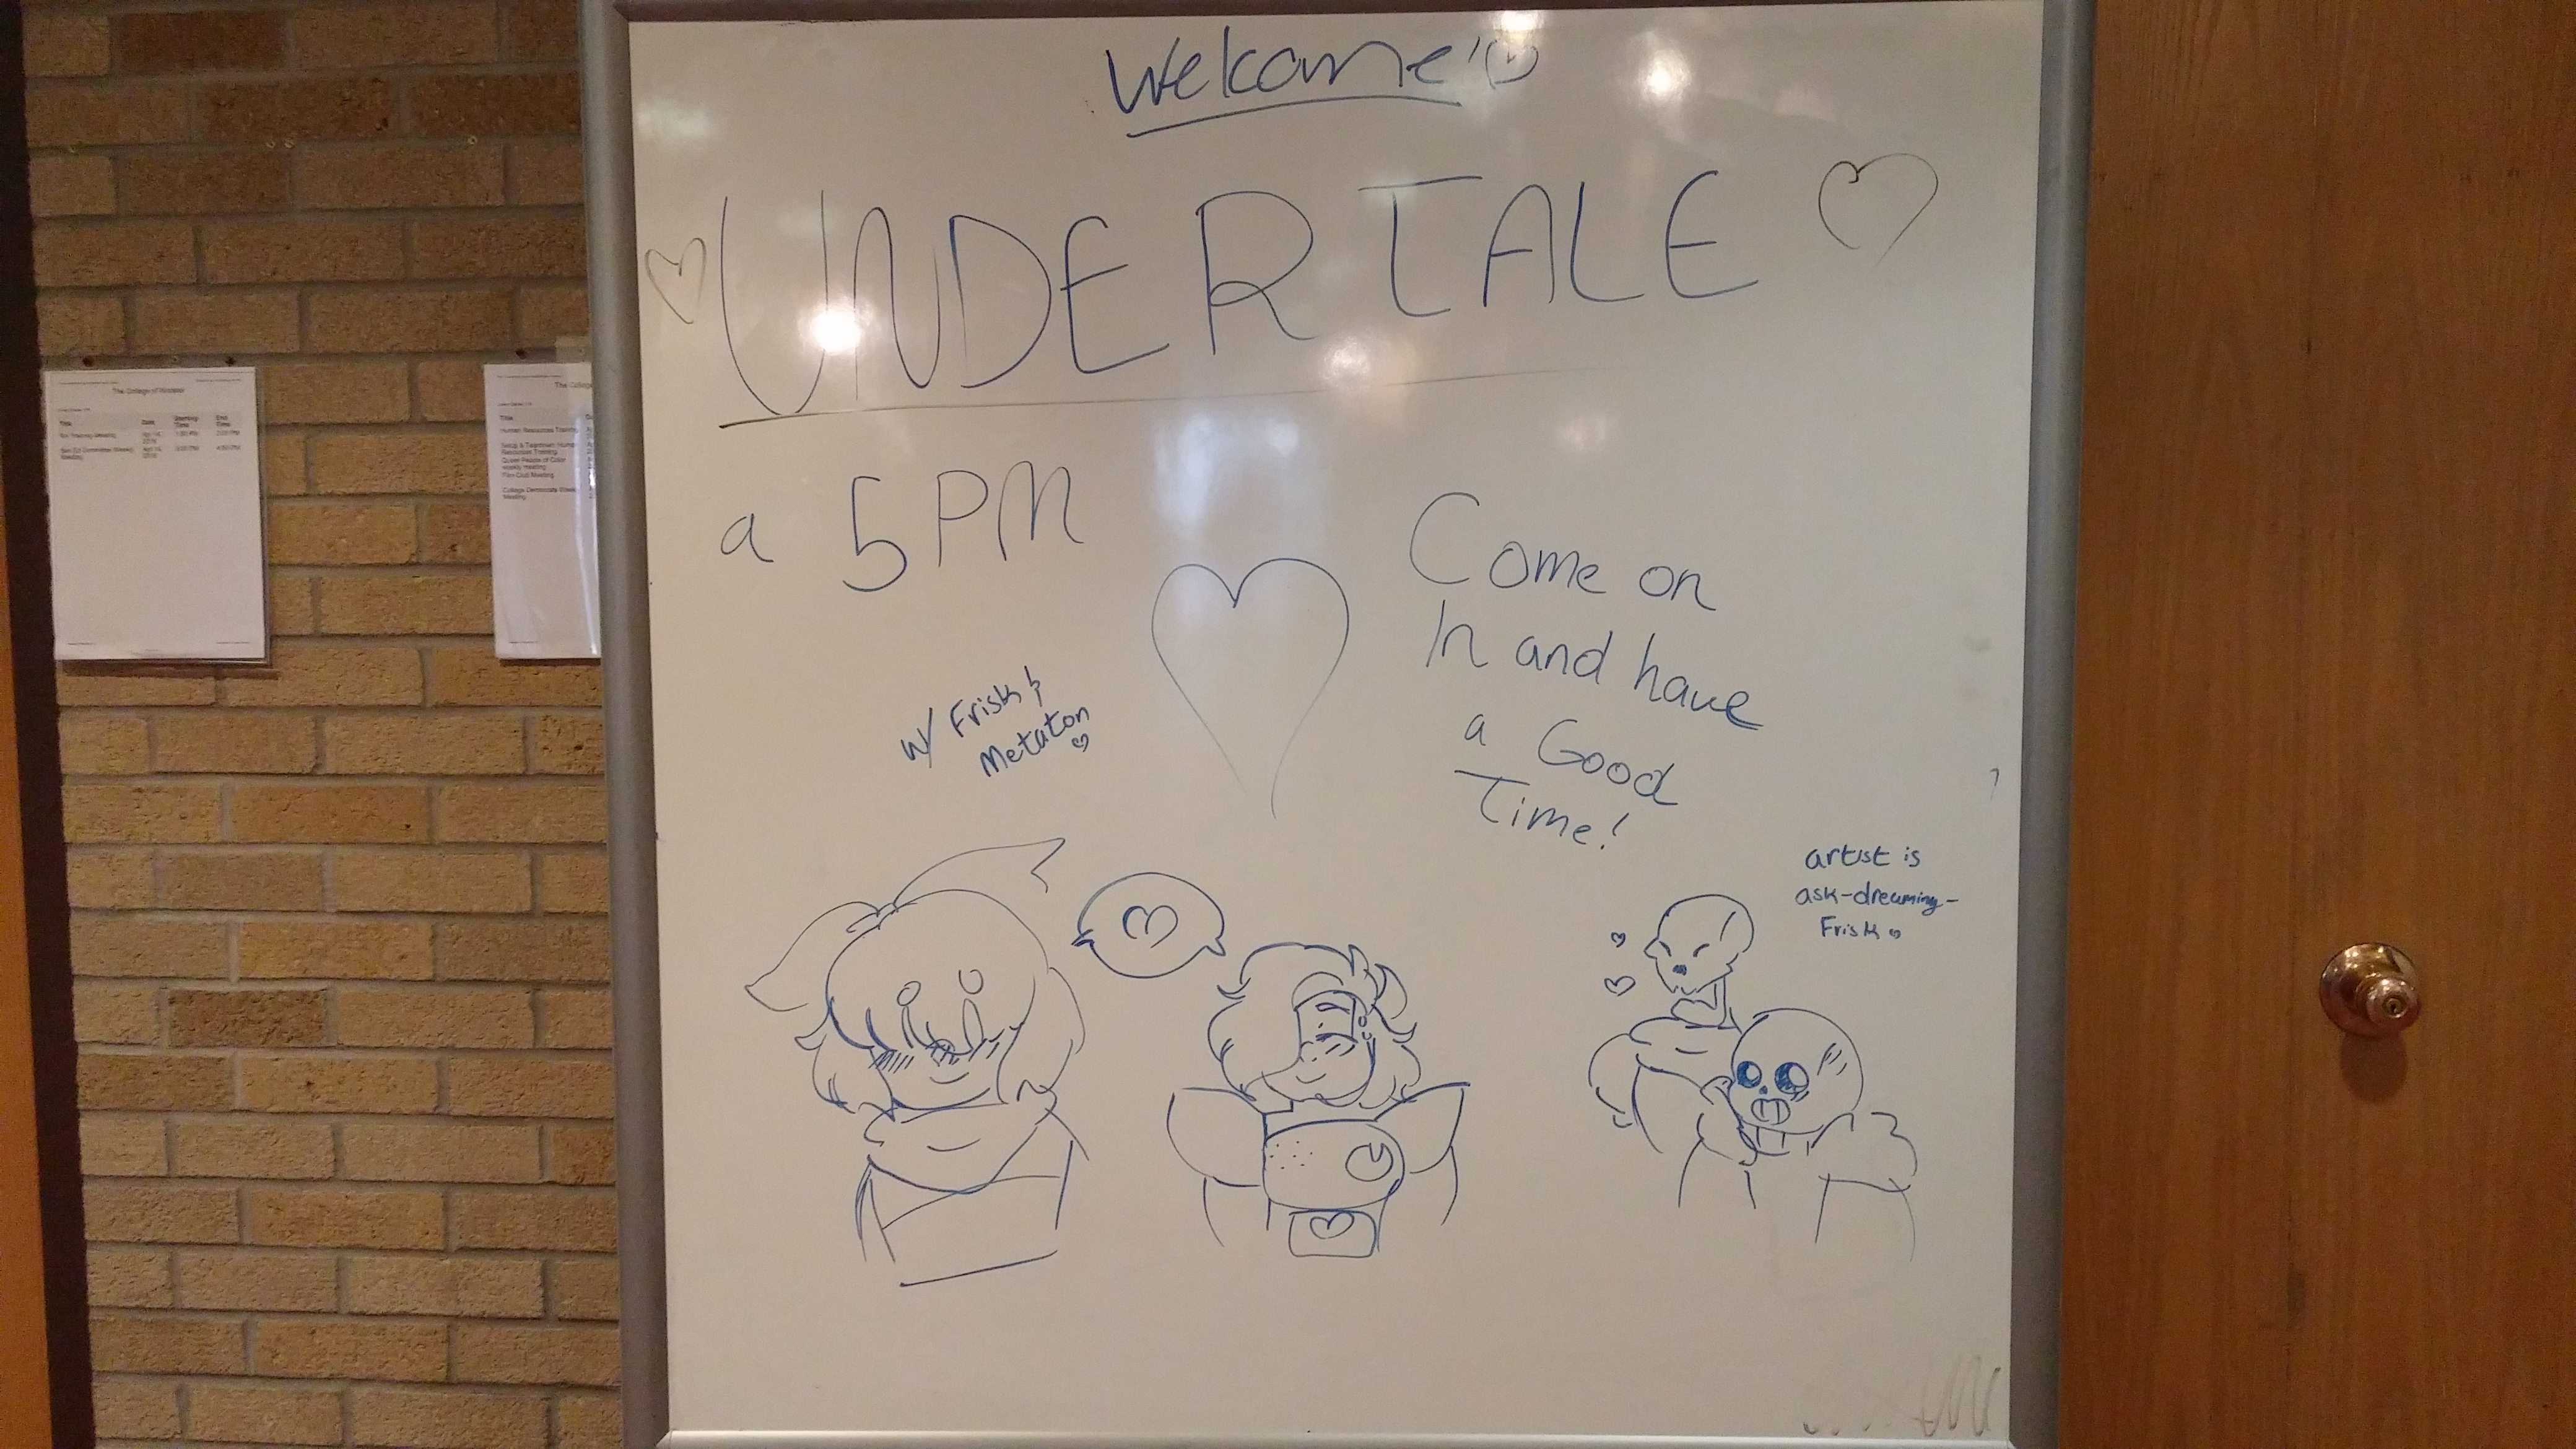 Welcome!
UNDERTALE
a 5PM
Come on
In and have
a Good
Time!
w/ Frisk &
Metaton
artist is
ask-dreaming-
Frisk
The College of Wooster
Title Date Starting Time End Time
The College
Title
Human Resources Training
Setup & Teardown: Human
Resources Training
Queer People of Color
weekly meeting
Film Club Meeting
College Democrats Weekly
Meeting